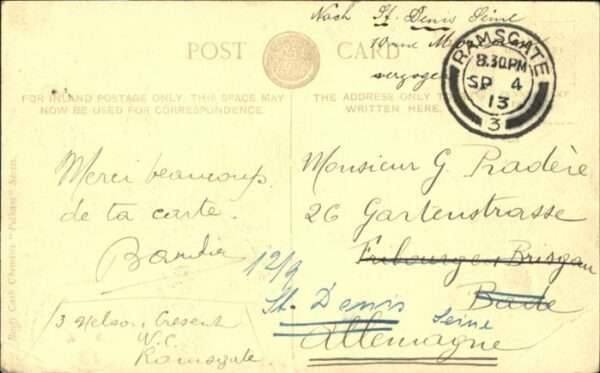 Nach St. Denis Seine
10 rue
POST CARD
RAMSGATE
8.30PM
SP 4
13
3
FOR INLAND POSTAGE ONLY, THIS SPACE MAY
NOW BE USED FOR CORRESPONDENCE.
THE ADDRESS ONLY TO BE
WRITTEN HERE.
Merci beaucoup
de ta carte.
3 Nelson Cresent
W.C.
Ramsgate.
Monsieur G. Pradère
26 Gartenstrasse
Fribourg en Brisgau
Bade
12/9
St. Denis
Seine
Allemagne